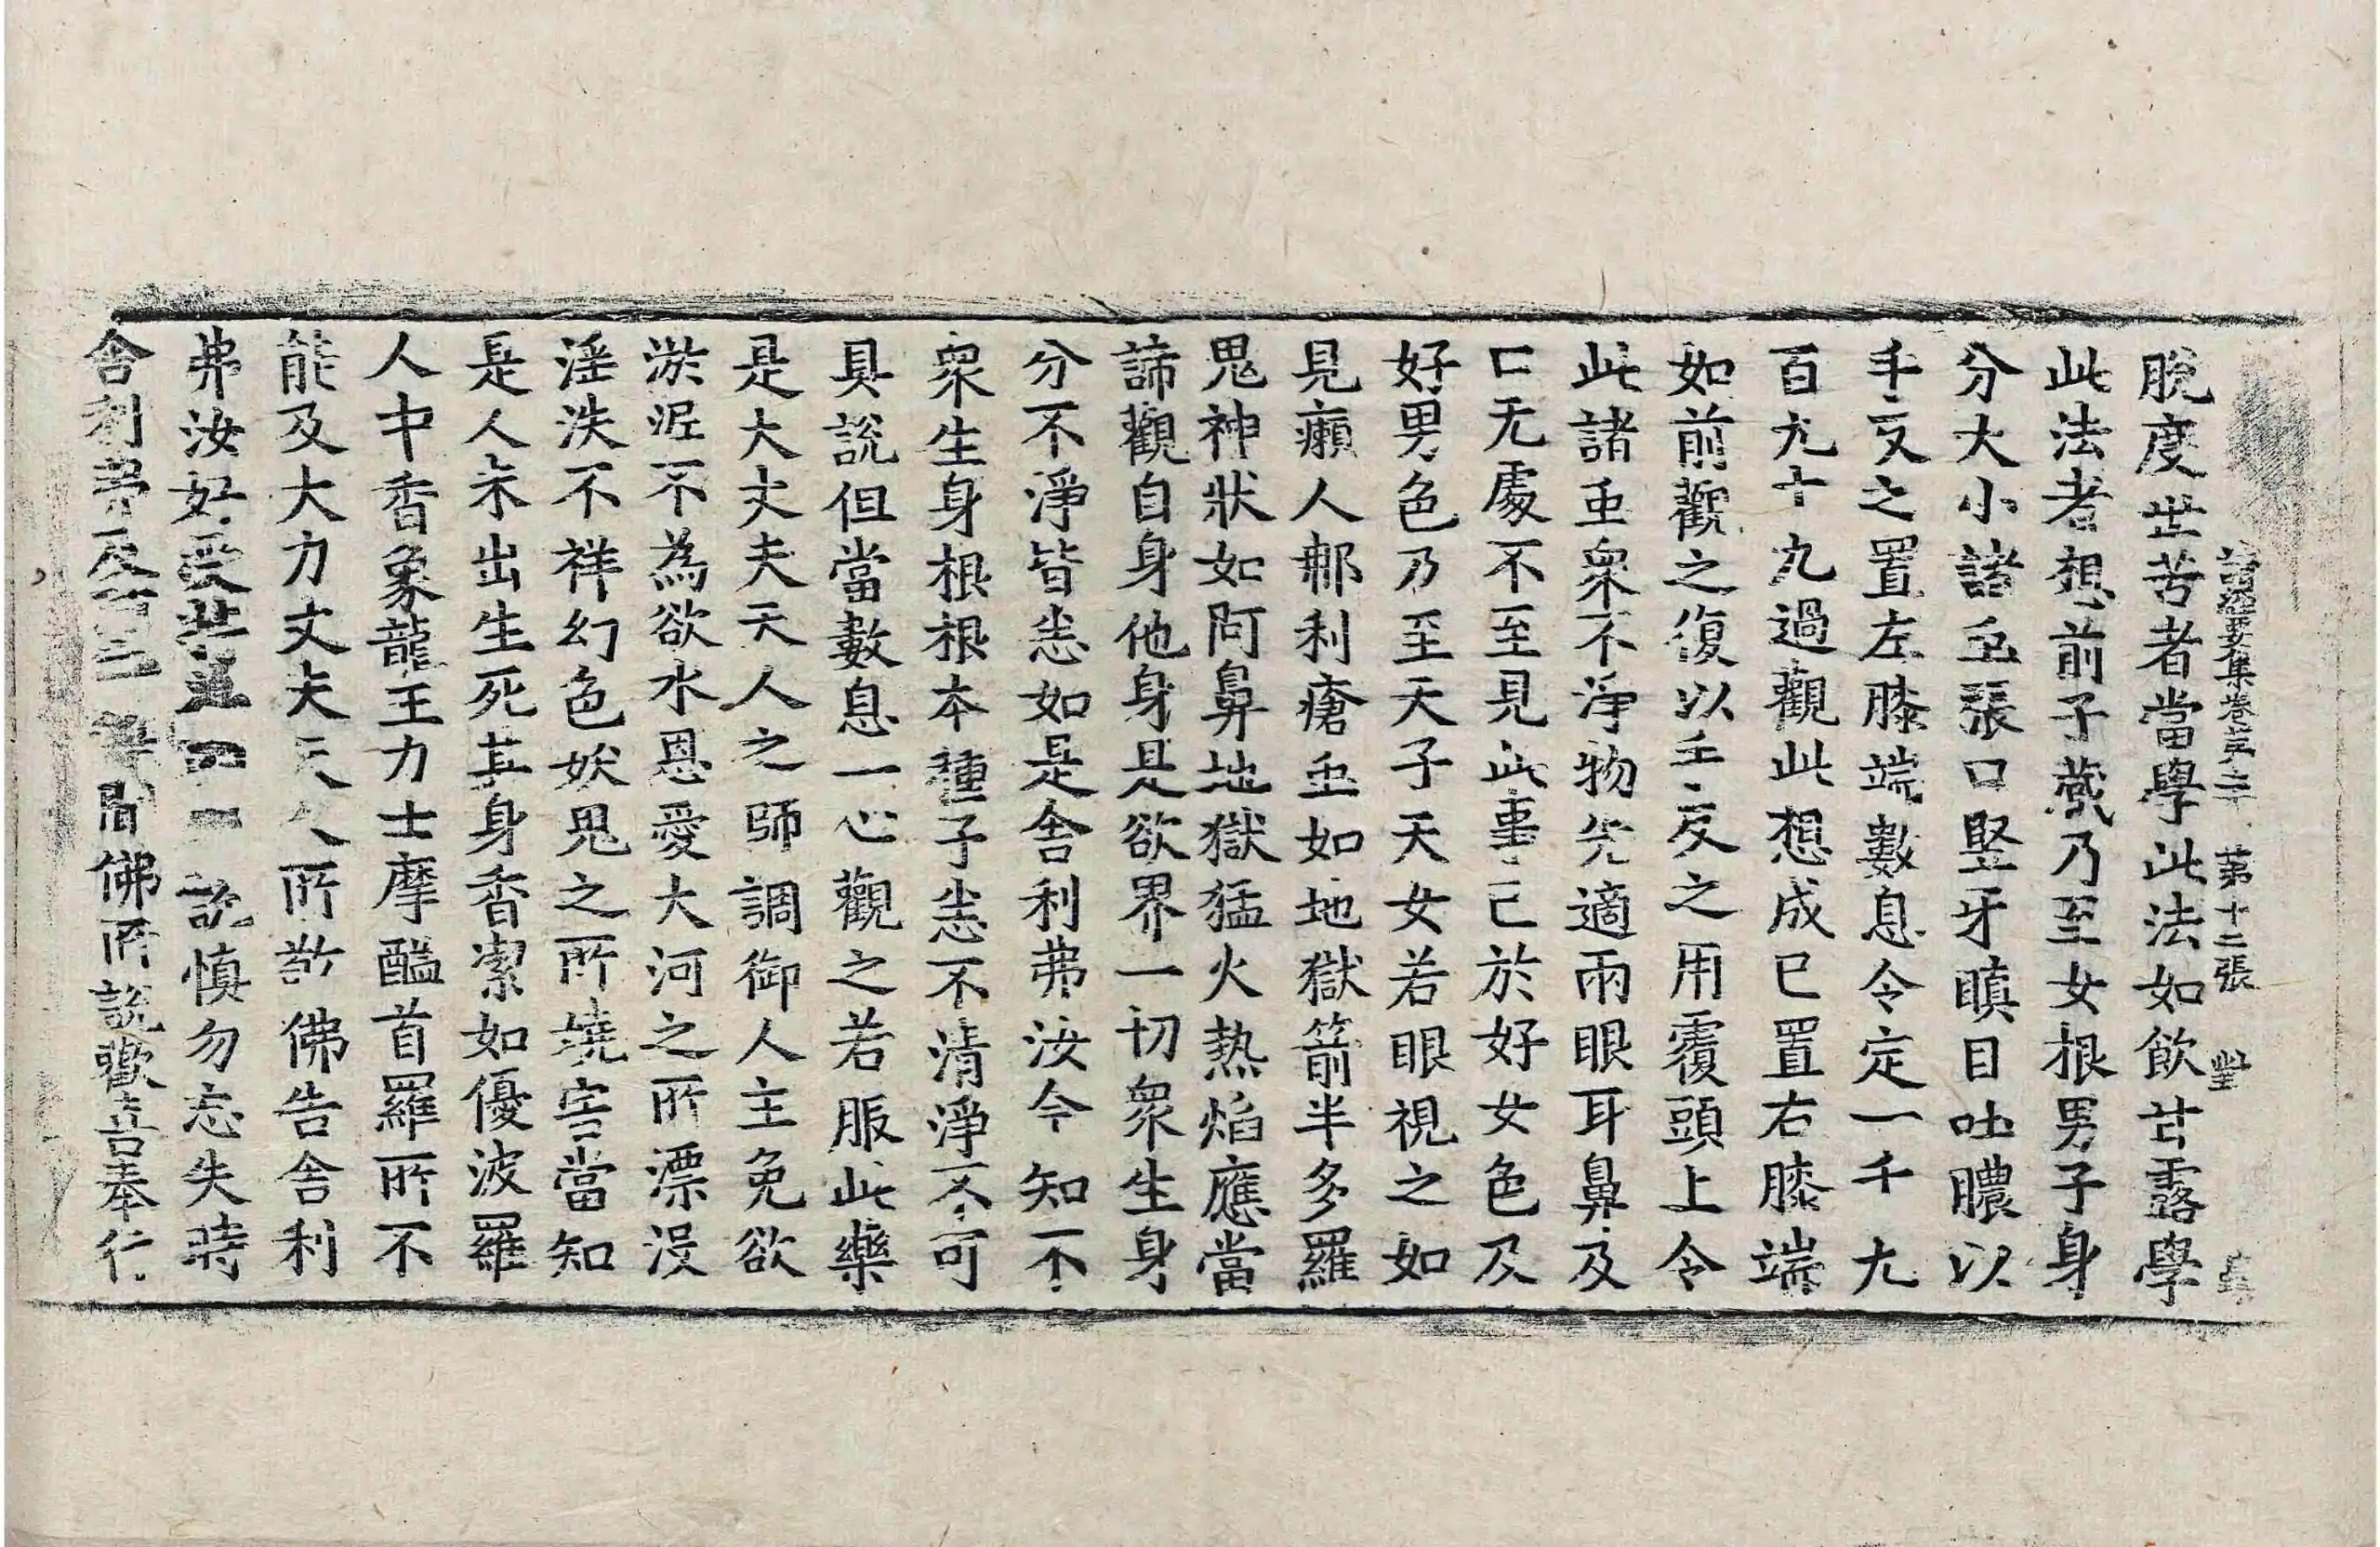 諸經要集卷第二十 第十二張
脫度世苦者當學此法如飲甘露學
此法者想前子藏乃至女根男子身
分大小諸虫張口竪牙瞋目吐膿以
手反之置左膝端數息令定一千九
百九十九過觀此想成已置右膝端
如前觀之復以手反之用覆頭上令
此諸虫衆不淨物先適兩眼耳鼻及
口无處不至見此事已於好女色及
好男色乃至天子天女若眼視之如
見癩人那利瘡虫如地獄箭半多羅
鬼神狀如阿鼻地獄猛火热焰應當
諦觀自身他身是欲界一切衆生身
分不淨皆悉如是舍利弗汝今知不
衆生身根根本種子悉不清淨不可
具說但當數息一心觀之若服此藥
是大丈夫天人之師調御人主免欲
淤泥不為欲水恩愛大河之所漂没
淫泆不祥幻色妖鬼之所嬈害當知
是人未出生死其身香潔如優波羅
人中香象龍王力士摩醯首羅所不
能及大力丈夫天人所敬佛告舍利
弗汝好受持為四說慎勿忘失時
舍利弗及聞佛所說歡喜奉行